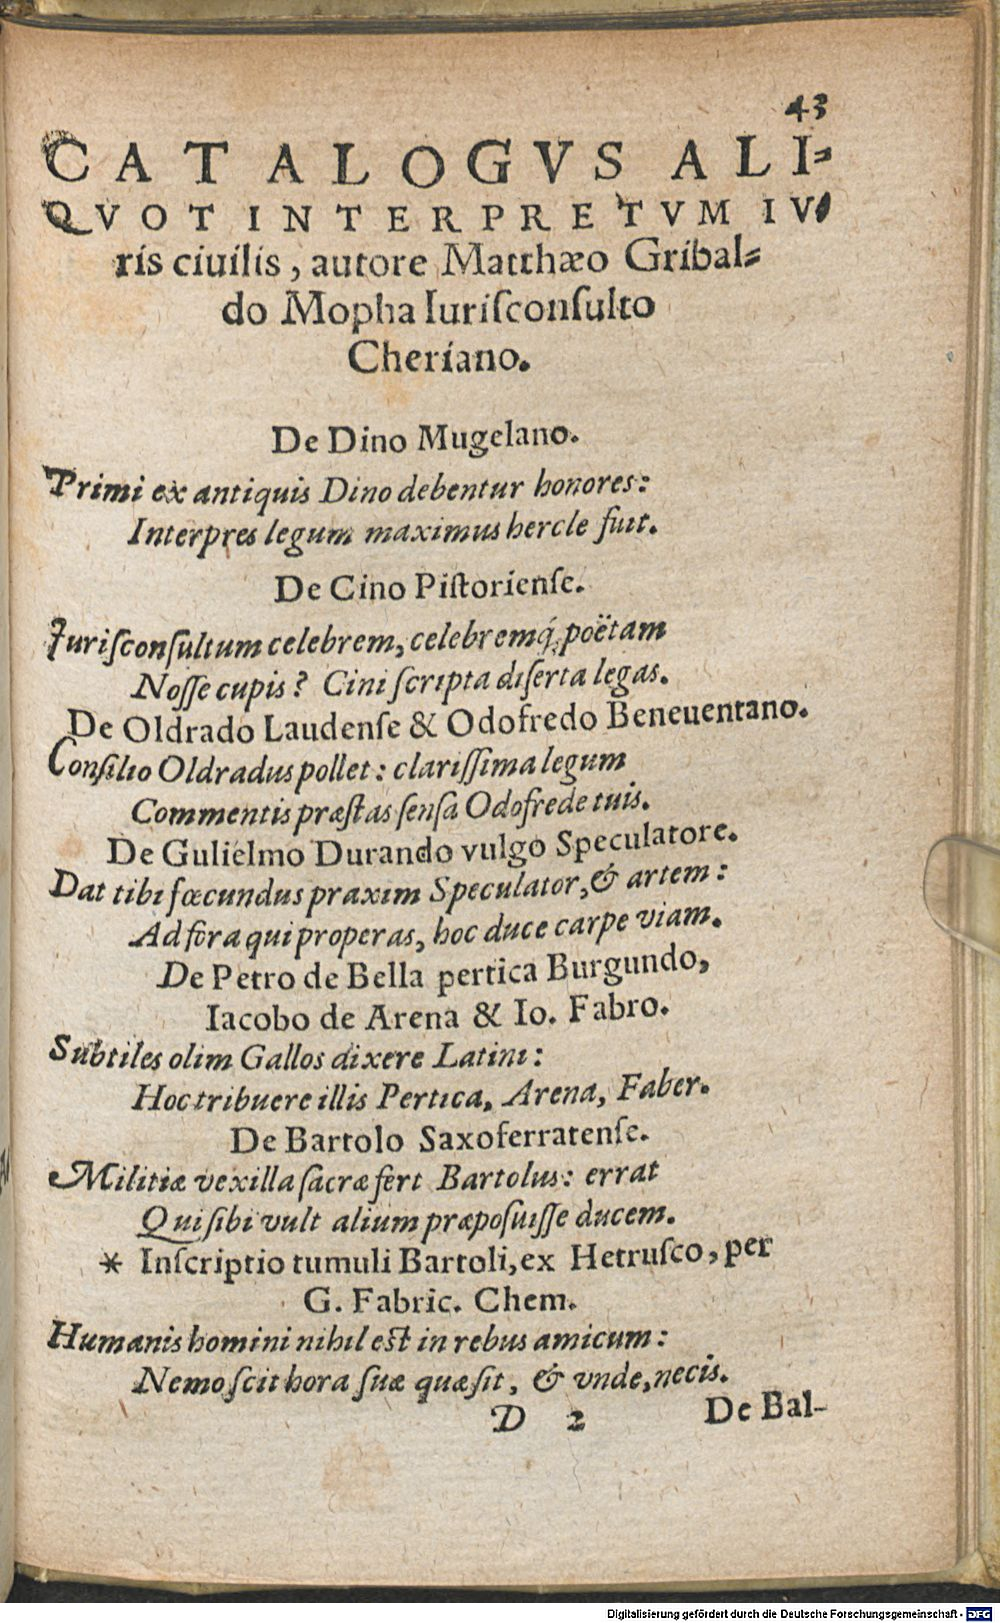 43
CATALOGVS ALI-
QVOT INTERPRETVM IV-
ris ciuilis, autore Matthæo Gribal-
do Mopha Iuriſconſulto
Cheriano.
De Dino Mugelano.
Primi ex antiquis Dino debentur honores:
Interpres legum maximus hercle fuit.
De Cino Piſtorienſe.
Iuriſconſultum celebrem, celebremq́; poëtam
Noſſe cupis? Cini ſcripta diſerta legas.
De Oldrado Laudenſe & Odofredo Beneuentano.
Conſilio Oldradus pollet: clariſſima legum
Commentis præſtas ſenſa Odofrede tuis.
De Gulielmo Durando vulgo Speculatore.
Dat tibi fœcundus praxim Speculator, & artem:
Ad fora qui properas, hoc duce carpe viam.
De Petro de Bella pertica Burgundo,
Iacobo de Arena & Io. Fabro.
Subtiles olim Gallos dixere Latini:
Hoc tribuere illis Pertica, Arena, Faber.
De Bartolo Saxoferratenſe.
Militiæ vexilla ſacræ fert Bartolus: errat
Qui ſibi vult alium præpoſuiſſe ducem.
* Inſcriptio tumuli Bartoli, ex Hetruſco, per
G. Fabric. Chem.
Humanis homini nihil est in rebus amicum:
Nemo ſcit hora ſuæ quæ ſit, & vnde, necis.
D 2 De Bal-
Digitalisierung gefördert durch die Deutsche Forschungsgemeinschaft - DFG